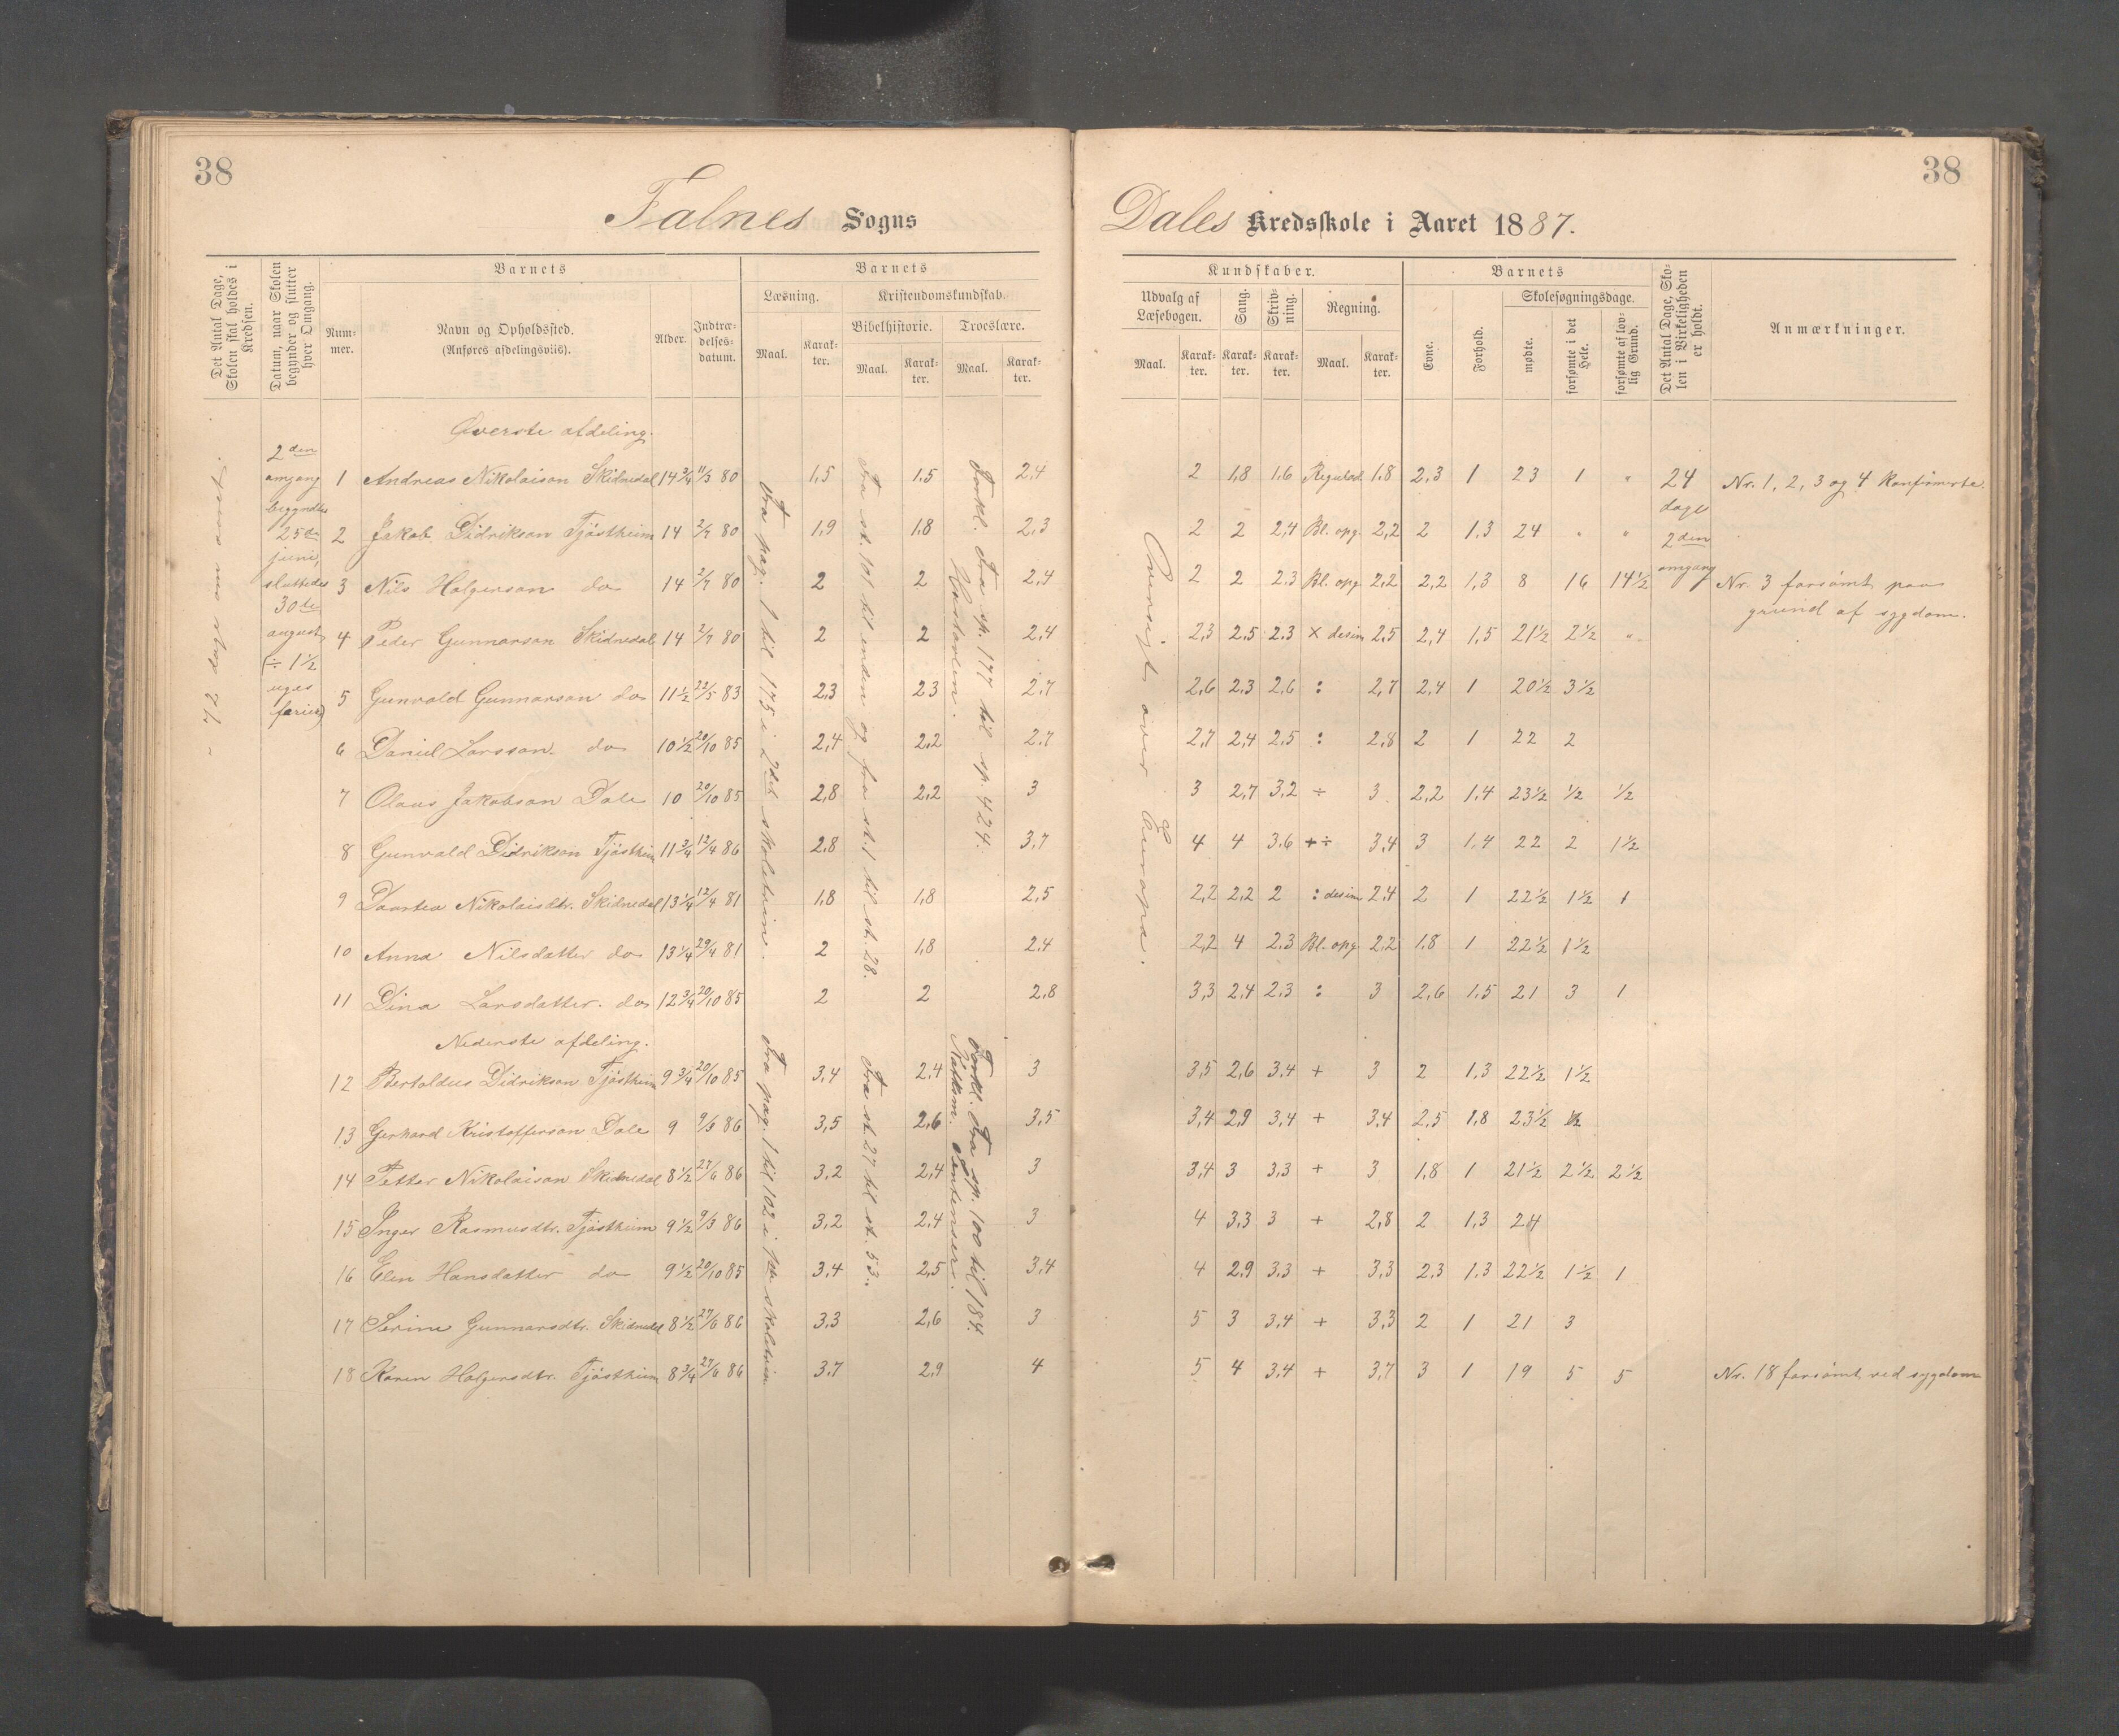 38
38
Falnes Sogns
Dales Kredsskole i Aaret 1887.
Det Antal Dage, Skolen skal holdes i Kredsen.
Datum, naar Skolen begynder og slutter hver Omgang.
Barnets
Nummer.
Navn og Opholdssted.
(Anføres afdelingsviis).
Alder.
Indtrædelsesdatum.
Barnets
Læsning.
Maal.
Karakter.
Kristendomskundskab.
Bibelhistorie.
Maal.
Karakter.
Troeslære.
Maal.
Karakter.
Kundskaber.
Udvalg af Læsebogen.
Maal.
Karakter.
Sang.
Karakter.
Skrivning.
Karakter.
Regning.
Maal.
Karakter.
Barnets
Evne.
Forhold.
Skolesøgningsdage.
mødte.
forsømte i det Hele.
forsømte af lovlig Grund.
Det Antal Dage, Skolen i Virkeligheden er holdt.
Anmærkninger.
2den
omgang
begyndtes
25de
juni,
sluttedes
30te
august
(÷ 1½
uges
ferier)
Øverste afdeling.
1 Andreas Nikolaison Skidnedal 14¾ 11/3 80 1,5 1,5 2,4 2 1,8 1,6 Regulad. 1,8 2,3 1 23 1 "
2 Jakob Didrikson Tjøstheim 14 2/7 80 1,9 1,8 2,3 2 2 2,4 Bl. opg. 2,2 2 1,3 24 " "
3 Nils Holgerson do 14 2/7 80 2 2 2,4 2 2 2,3 Bl. opg. 2,2 2,2 1,3 8 16 14½
4 Peder Gunnarson Skidnedal 14 2/7 80 2 2 2,4 2,3 2,5 2,3 × desim 2,5 2,4 1,5 21½ 2½ "
5 Gunvald Gunnarson do 11½ 22/5 83 2,3 2,3 2,7 2,6 2,3 2,6 : 2,7 2,4 1 20½ 3½
6 Daniel Larsson do 10½ 20/10 85 2,4 2,2 2,7 2,7 2,4 2,5 : 2,8 2 1 22 2
7 Olaus Jakobson Dale 10 20/10 85 2,8 2,2 3 3 2,7 3,2 ÷ 3 2,2 1,4 23½ ½ ½
8 Gunvald Didrikson Tjøstheim 11¾ 12/4 86 2,8 3,7 4 4 3,6 +÷ 3,4 3 1,4 22 2 1½
9 Daartea Nikolaisdtr. Skidnedal 13¼ 12/4 81 1,8 1,8 2,5 2,2 2,2 2 : desim 2,4 2 1 22½ 1½ 1
10 Anna Nilsdatter do 13¼ 29/4 81 2 1,8 2,4 2,2 4 2,3 Bl. opg. 2,2 1,8 1 22½ 1½
11 Dina Larsdatter do 12¾ 20/10 85 2 2 2,8 3,3 2,4 2,3 : 3 2,6 1,5 21 3 1
Nederste afdeling.
12 Bertoldus Didrikson Tjøstheim 9¾ 20/10 85 3,4 2,4 3 3,5 2,6 3,4 + 3 2 1,3 22½ 1½
13 Gerhard Kristofferson Dale 9 9/3 86 3,5 2,6 3,5 3,4 2,9 3,4 + 3,4 2,5 1,8 23½ ½
14 Petter Nikolaison Skidnedal 8½ 27/6 86 3,2 2,4 3 3,4 3 3,3 + 3 1,8 1 21½ 2½ 2½
15 Inger Rasmusdtr. Tjøstheim 9½ 9/3 86 3,2 2,4 3 4 3,3 3 + 2,8 2 1,3 24
16 Elen Hansdatter do 9½ 20/10 85 3,4 2,5 3,4 4 2,9 3,3 + 3,3 2,3 1,3 22½ 1½ 1
17 Serine Gunnarsdtr. Skidnedal 8½ 27/6 86 3,3 2,6 3 5 3 3,4 + 3,3 2 1 21 3
18 Karen Holgersdtr. Tjøstheim 8¾ 27/6 86 3,7 2,9 4 5 4 3,4 + 3,7 3 1 19 5 5
Fra pag. 1 til 175 i 2det skoletrin.
Fra st. 101 til enden og fra st. 1 til st. 28.
Forkl. Fra sp. 177 til sp. 424.
Hustavlen.
Fra pag. 1 til 102 i 1ste skoletrin
Fra st. 27 til st. 53.
Forkl. Fra sp. 100 til 184.
Katkm. Sentenser.
Oversigt over Europa.
24
dage
2den
omgang
Nr. 1, 2, 3 og 4 konfirmerte.
Nr. 3 forsømt paa
grund af sygdom.
Nr. 18 forsømt ved sygdom